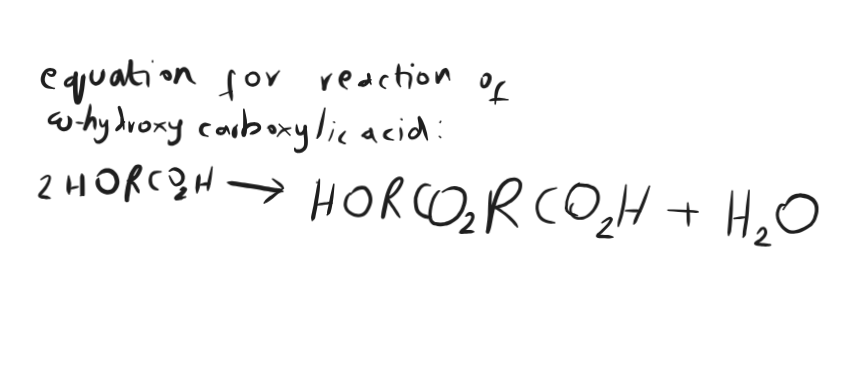 equation for reaction of
ω-hydroxy carboxylic acid:
2 HORCO₂H → HORCO₂RCO₂H + H₂O